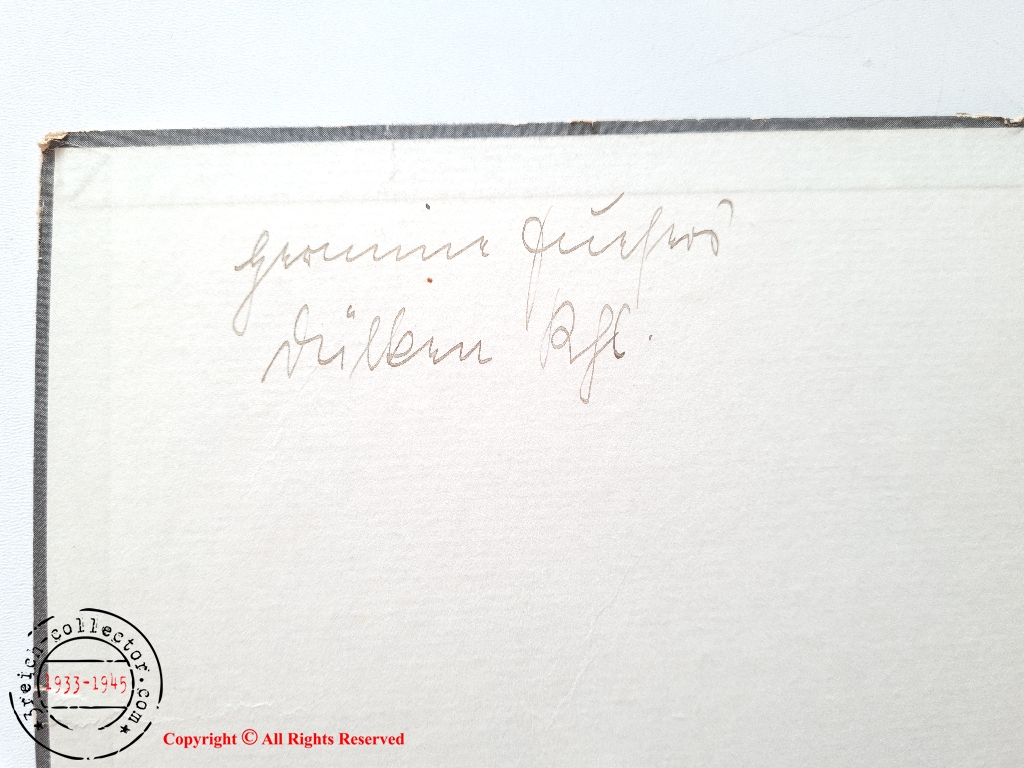 Hermine
Dülken Rhl.
3reich-collector.com
1933-1945
Copyright © All Rights Reserved